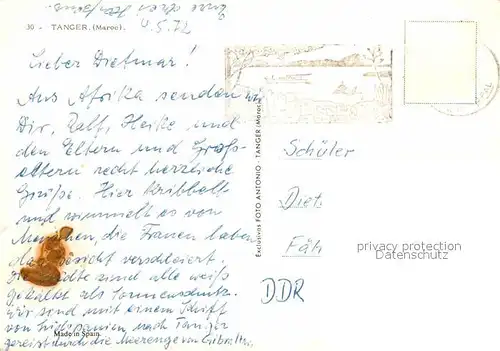 Eure
4.5.72
30 - TANGER. (Maroc).
Lieber Dietmar!
Aus Afrika senden wir
Dir, Ralf, Heike und
den Eltern und Groß-
eltern recht herzliche
Grüße. Hier kribbelt
und wimmelt es von
Menschen, die Frauen haben
das Gesicht verschleiert.
Die Städte sind alle weiß
gekalkt als Sonnenschutz.
Wir sind mit einem Schiff
von Südspanien nach Tanger
gereist durch die Meerenge von Gibraltar
Made in Spain
Exclusivas FOTO ANTONIO - TANGER (Maroc)
Schüler
Diet
Fäh
DDR
privacy protection
Datenschutz